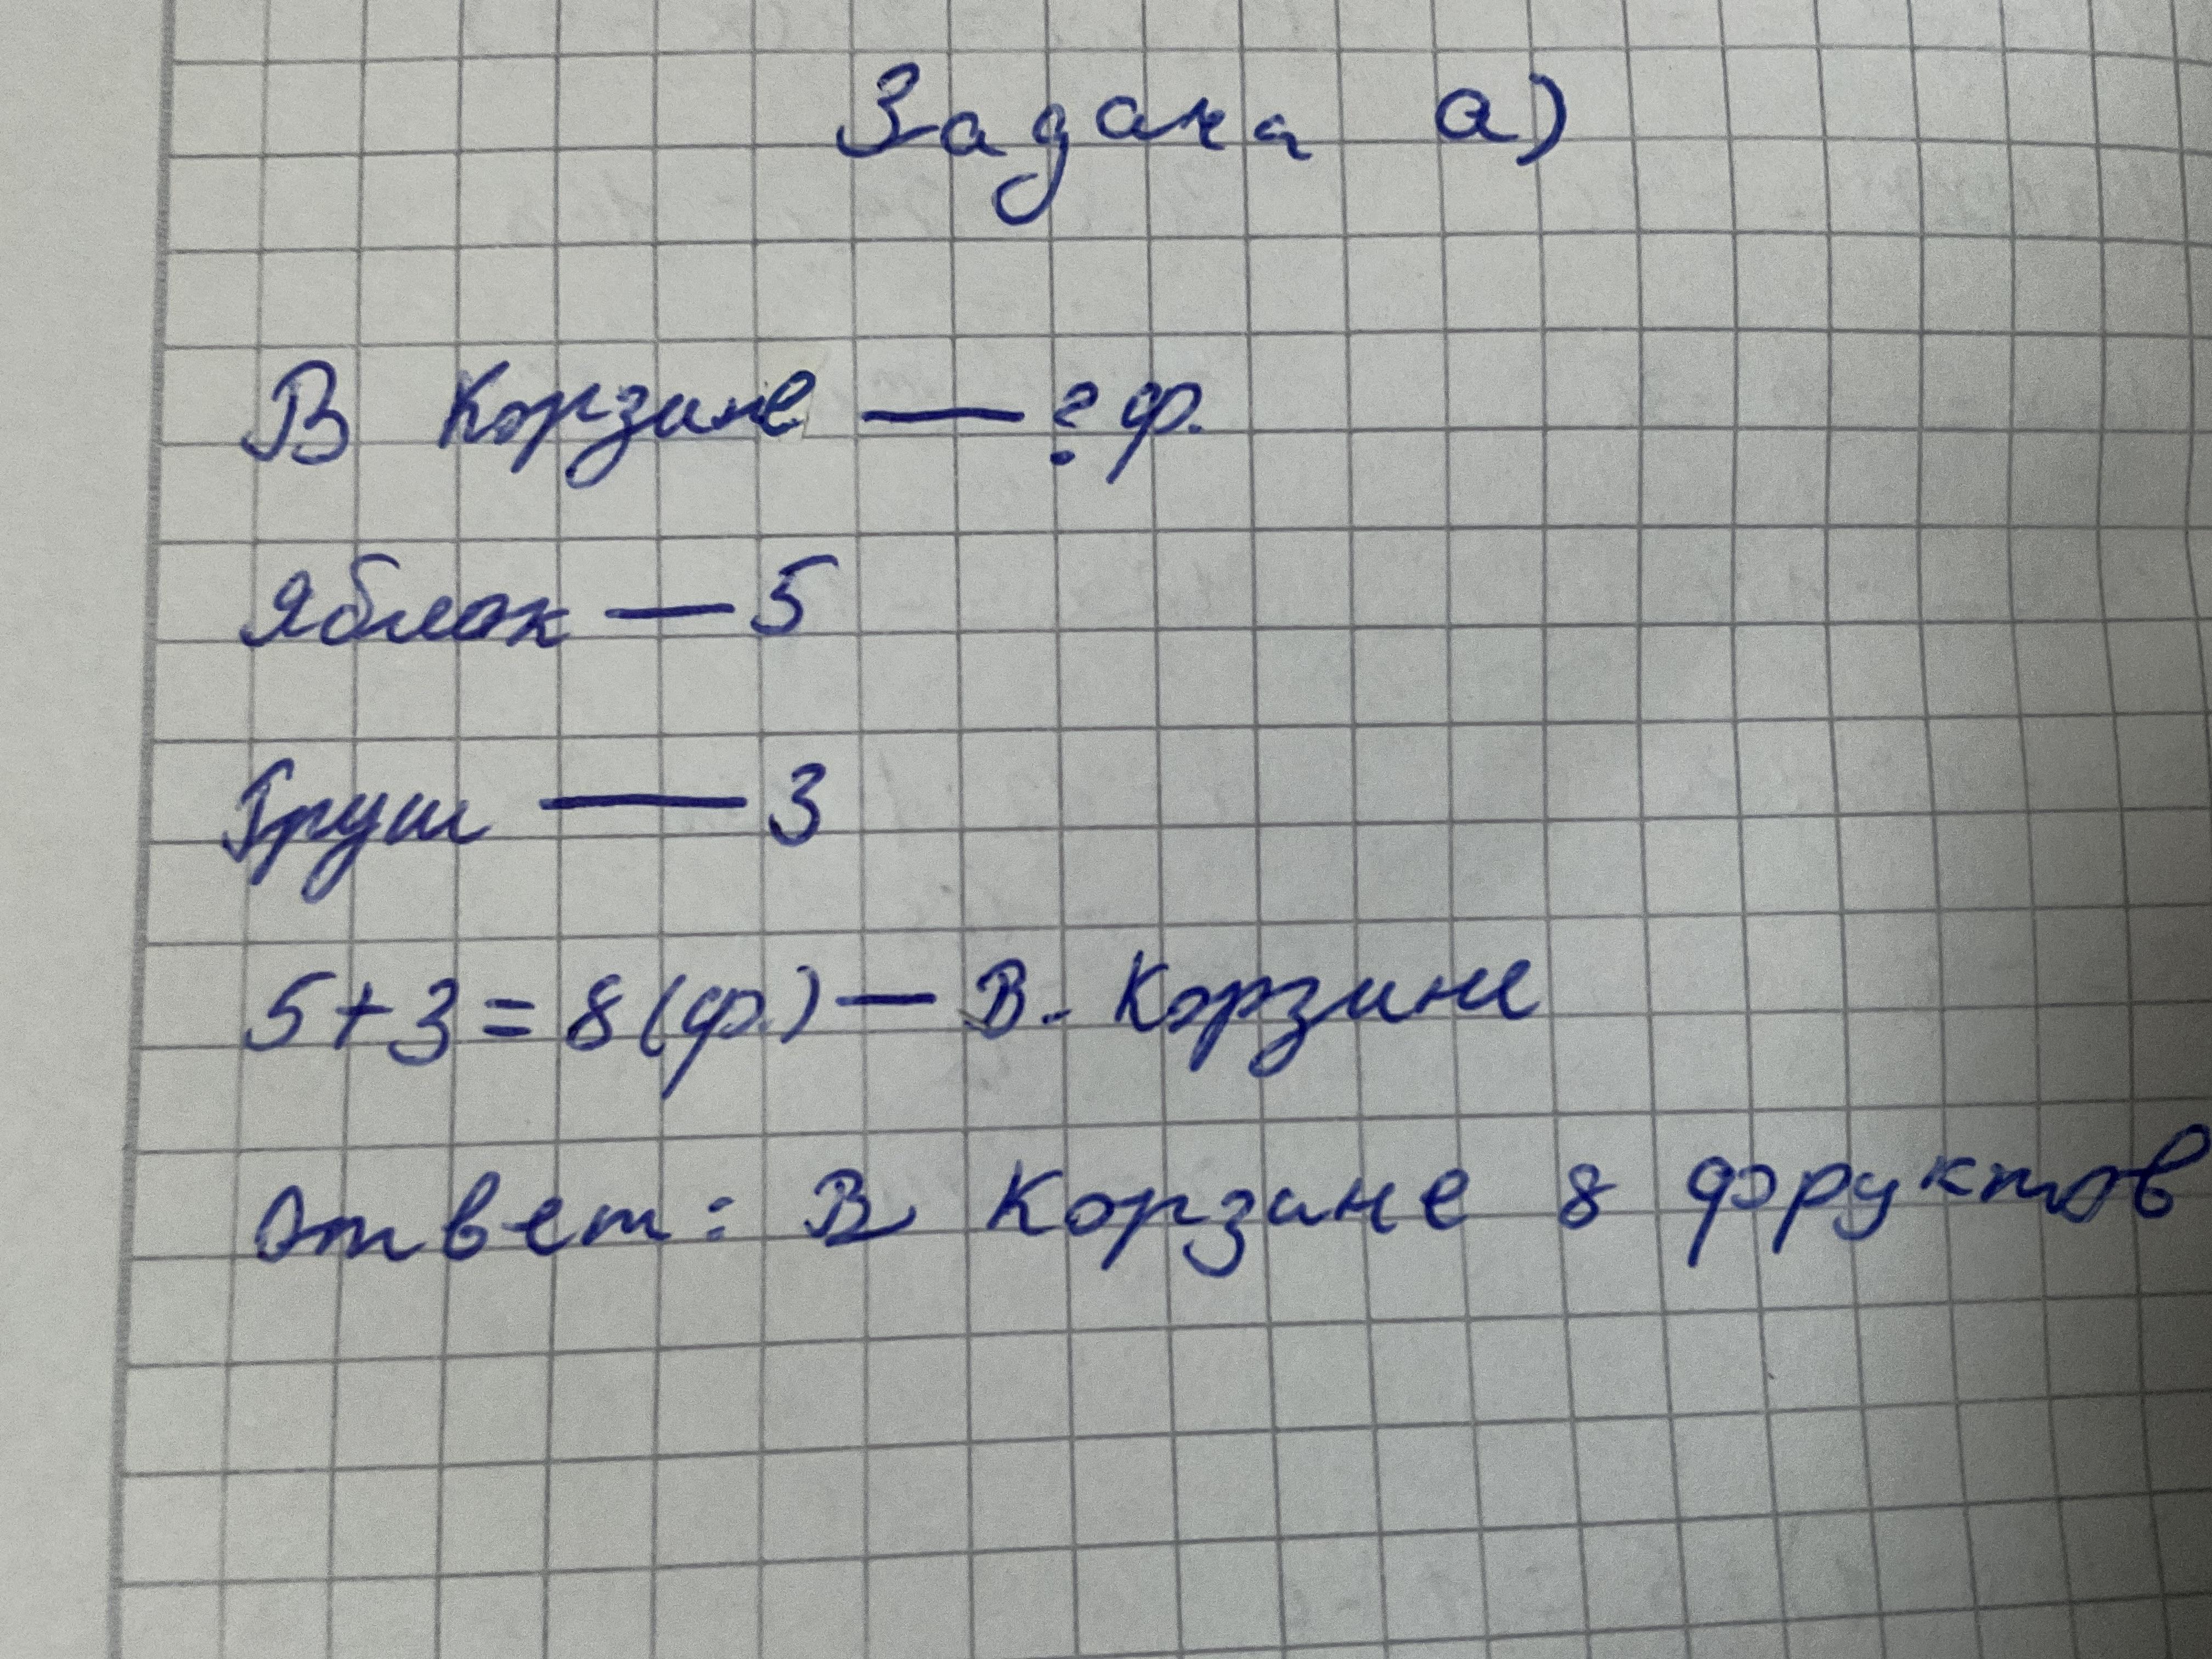 Задача а)
В Корзине — ? ф.
Яблок — 5
Груш — 3
5+3=8(ф.) — В. Корзине
Ответ: В Корзине 8 фруктов